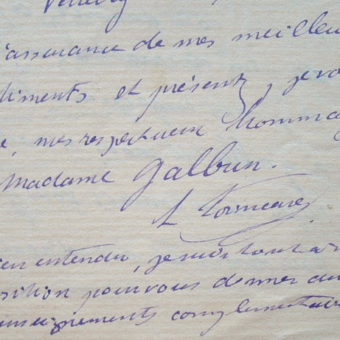 l'assurance de mes meilleu
timents et présent, je vo
e, mes respectueux hommag
madame Galbrun.
bien entendu, je suis tout à
sition pour vous donner
renseignements complémentaire